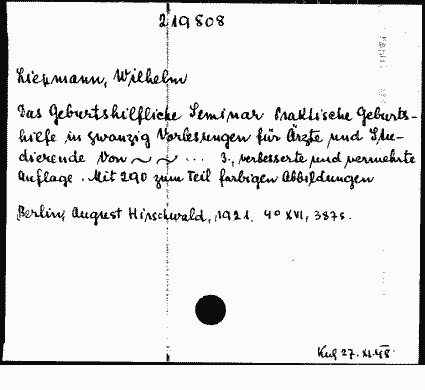 219808
Liepmann, Wilhelm
Das Geburtshilfliche Seminar Praktische Geburts-
hilfe in zwanzig Vorlesungen für Ärzte und Stu-
dierende von ~ ~ ... 3., verbesserte und vermehrte
Auflage. Mit 290 zum Teil farbigen Abbildungen
Berlin, August Hirschwald, 1921. 4° XVI, 387s.
27. XI. 48